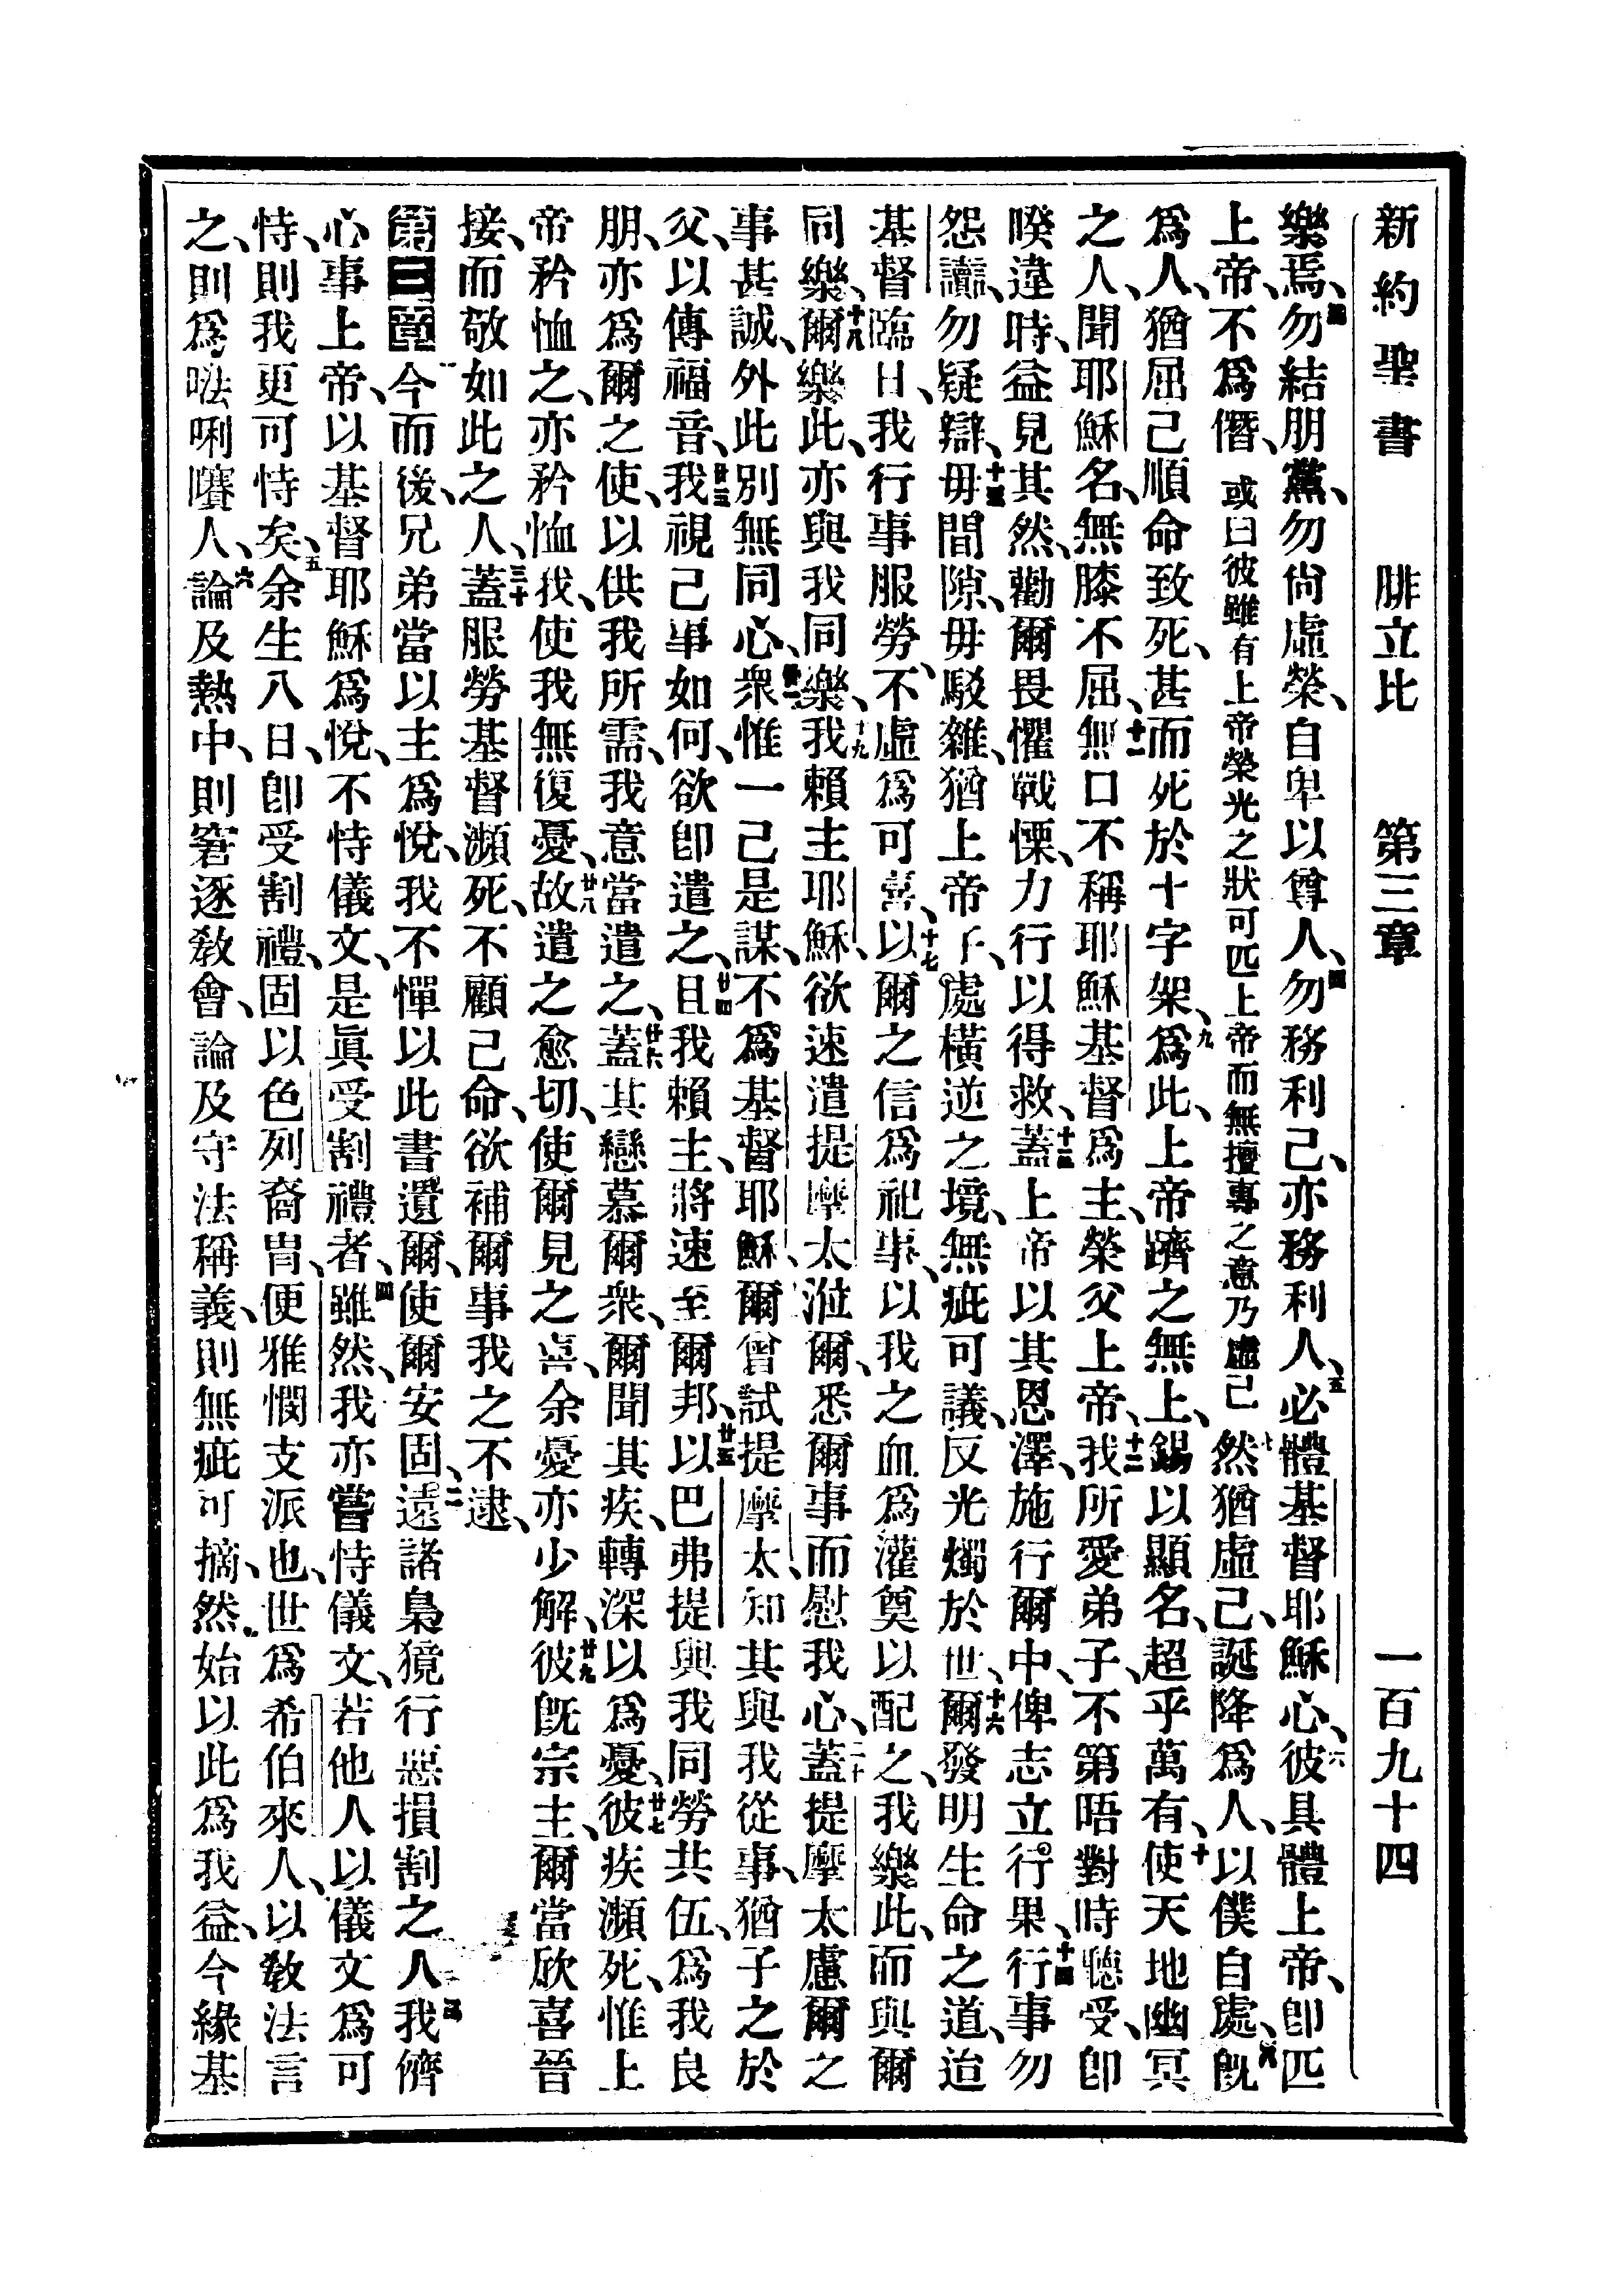 新約聖書 腓立比 第三章 一百九十四
樂焉、三勿結朋黨、勿尙虛榮、自卑以尊人、四勿務利己、亦務利人、五必體基督耶穌心、六彼具體上帝、卽匹
上帝、不爲僭、或曰彼雖有上帝榮光之狀可匹上帝而無擅專之意乃虛己七然猶虛己、誕降爲人、以僕自處、八旣
爲人、猶屈己順命致死、甚而死於十字架、九爲此、上帝躋之無上、錫以顯名、超乎萬有、十使天地幽冥
之人、聞耶穌名、無膝不屈、十一無口不稱耶穌基督爲主、榮父上帝、十二我所愛弟子、不第晤對時聽受、卽
暌違時、益見其然、勸爾畏懼戰慄、力行以得救、十三蓋上帝以其恩澤、施行爾中、俾志立。行果、十四行事勿
怨讟、勿疑辯、十五毋間隙、毋駁雜、猶上帝子。處橫逆之境、無疵可議、反光燭於世、十六爾發明生命之道、迨
基督臨日、我行事服勞、不虛爲可喜、十七以爾之信爲祀事、以我之血爲灌奠以配之、我樂此、而與爾
同樂、十八爾樂此、亦與我同樂、十九我賴主耶穌、欲速遣提摩太涖爾、悉爾事而慰我心、二十蓋提摩太慮爾之
事甚誠、外此別無同心、廿一衆惟一己是謀、不爲基督耶穌、廿二爾曾試提摩太、知其與我從事、猶子之於
父、以傳福音、廿三我視己事如何、欲卽遣之、廿四且我賴主、將速至爾邦、廿五以巴弗提與我同勞共伍、爲我良
朋、亦爲爾之使、以供我所需、我意當遣之、廿六蓋其戀慕爾衆、爾聞其疾、轉深以爲憂、廿七彼疾瀕死、惟上
帝矜恤之、亦矜恤我、使我無復憂、廿八故遣之愈切、使爾見之喜、余憂亦少解、廿九彼旣宗主、爾當欣喜晉
接、而敬如此之人、三十蓋服勞基督瀕死、不顧己命、欲補爾事我之不逮、
第三章一今而後、兄弟當以主爲悅、我不憚以此書遺爾、使爾安固、二遠諸梟獍行惡損割之人、三我儕
心事上帝、以基督耶穌爲悅、不恃儀文、是眞受割禮者、四雖然、我亦嘗恃儀文、若他人以儀文爲可
恃、則我更可恃矣、五余生八日、卽受割禮、固以色列裔冑、便雅憫支派也、世爲希伯來人、以敎法言
之、則爲𠵽唎㘔人、六論及熱中、則窘逐敎會、論及守法稱義、則無疵可摘、七然始以此爲我益、今緣基